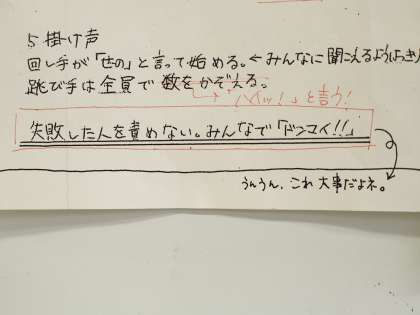 5 掛け声
回し手が「せの」と言って始める。←みんなに聞こえるようはっきり
跳び手は全員で数をかぞえる。
→"ハイッ!"と言う!
失敗した人を責めない。みんなで「ドンマイ!!」
うんうん、これ大事だよネ。